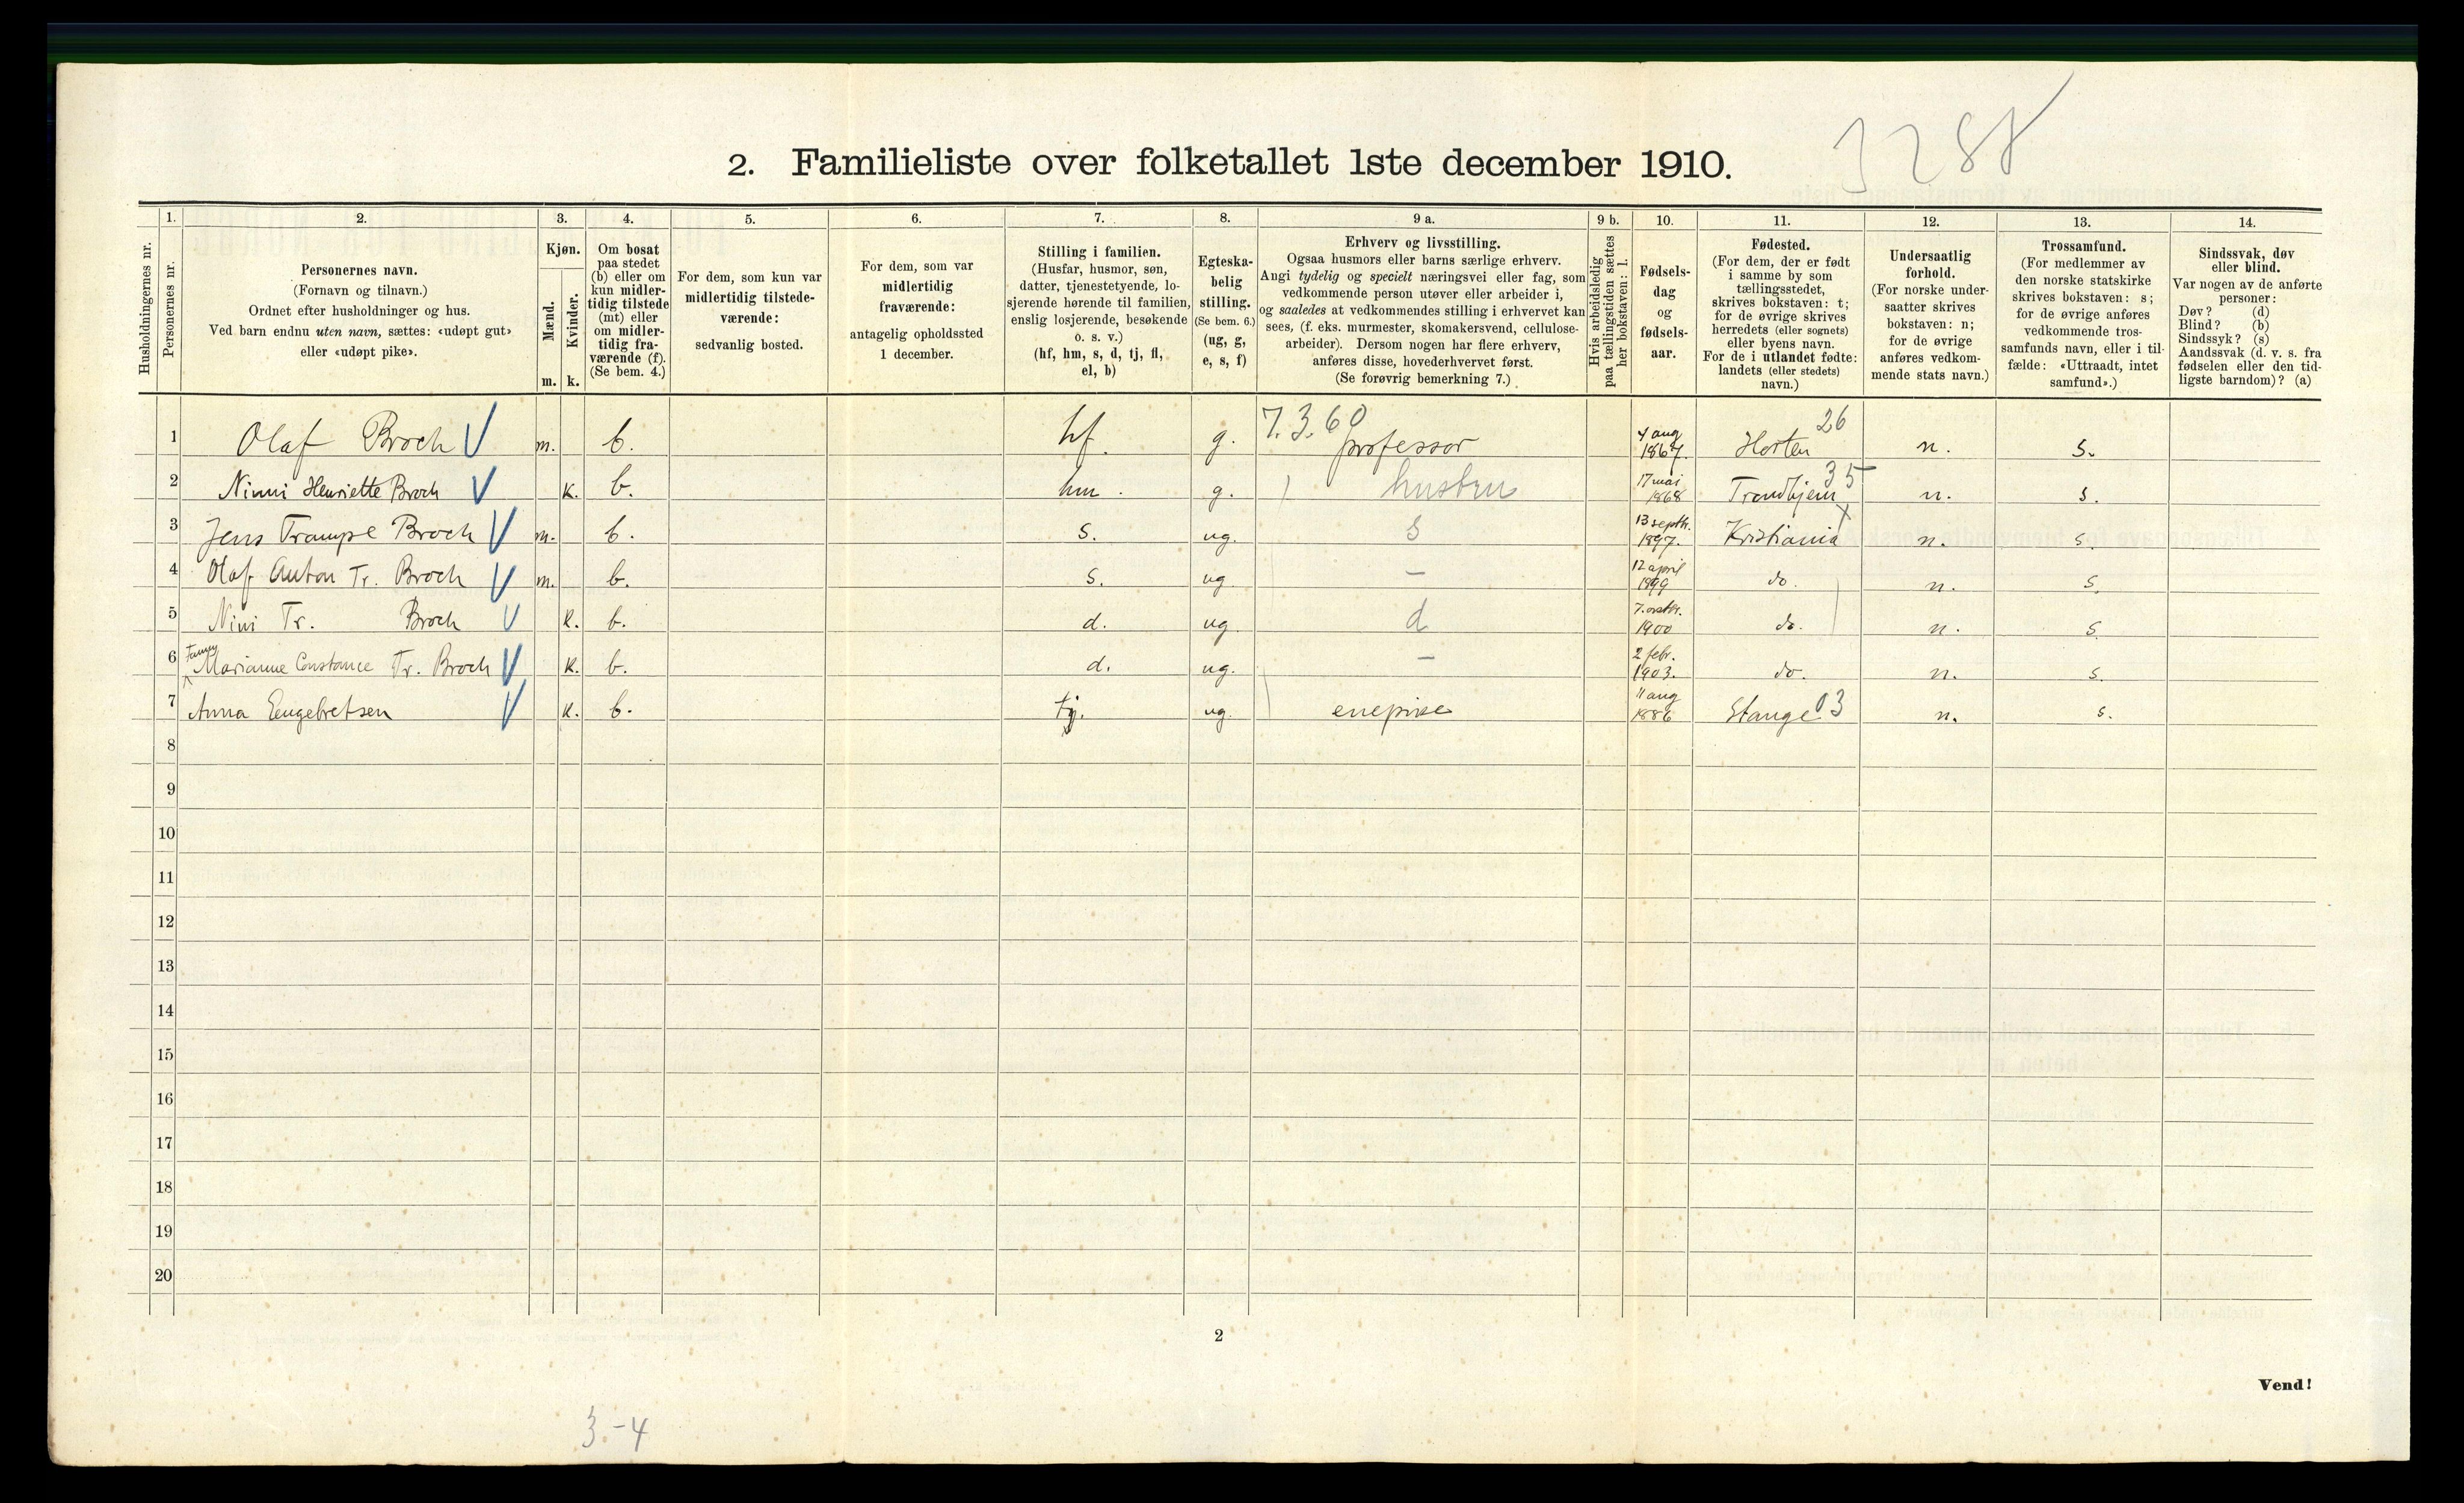 3288
2. Familieliste over folketallet 1ste december 1910.
Husholdningernes nr.
1.
Personernes nr.
2.
Personernes navn.
(Fornavn og tilnavn.)
Ordnet efter husholdninger og hus.
Ved barn endnu uten navn, sættes: «udøpt gut»
eller «udøpt pike».
3.
Kjøn.
Mænd.
Kvinder.
m. k.
4.
Om bosat
paa stedet
(b) eller om
kun midler-
tidig tilstede
(mt) eller
om midler-
tidig fra-
værende (f).
(Se bem. 4.)
5.
For dem, som kun var
midlertidig tilstede-
værende:
sedvanlig bosted.
6.
For dem, som var
midlertidig
fraværende:
antagelig opholdssted
1 december.
7.
Stilling i familien.
(Husfar, husmor, søn,
datter, tjenestetyende, lo-
sjerende hørende til familien,
enslig losjerende, besøkende
o. s. v.)
(hf, hm, s, d, tj, fl,
el, b)
8.
Egteska-
belig
stilling.
(Se bem. 6.)
(ug, g,
e, s, f)
9 a.
Erhverv og livsstilling.
Ogsaa husmors eller barns særlige erhverv.
Angi tydelig og specielt næringsvei eller fag, som
vedkommende person utøver eller arbeider i,
og saaledes at vedkommendes stilling i erhvervet kan
sees, (f. eks. murmester, skomakersvend, cellulose-
arbeider). Dersom nogen har flere erhverv,
anføres disse, hovederhvervet først.
(Se forøvrig bemerkning 7.)
9 b.
Hvis arbeidsledig
paa tællingstiden sættes
her bokstaven: l.
10.
Fødsels-
dag
og
fødsels-
aar.
11.
Fødested.
(For dem, der er født
i samme by som
tællingsstedet,
skrives bokstaven: t;
for de øvrige skrives
herredets (eller sognets)
eller byens navn.
For de i utlandet fødte:
landets (eller stedets)
navn.)
12.
Undersaatlig
forhold.
(For norske under-
saatter skrives
bokstaven: n;
for de øvrige
anføres vedkom-
mende stats navn.)
13.
Trossamfund.
(For medlemmer av
den norske statskirke
skrives bokstaven: s;
for de øvrige anføres
vedkommende tros-
samfunds navn, eller i til-
fælde: «Uttraadt, intet
samfund».)
14.
Sindssvak, døv
eller blind.
Var nogen av de anførte
personer:
Døv? (d)
Blind? (b)
Sindssyk? (s)
Aandssvak (d. v. s. fra
fødselen eller den tid-
ligste barndom)? (a)
1 Olaf Broch V m. b. hf. g. 7.3.60 professor 4 aug 1867. Horten 26 n. s.
2 Ninni Henriette Broch V k. b. hm. g. hustru 17 mai 1868 Trondhjem 35 n. s.
3 Jens Trampe Broch V m. b. s. ug. s 13 septbr. 1897. Kristiania x n. s.
4 Olaf Anton Tr. Broch V m. b. s. ug – 12 april 1899 do. n. s.
5 Nini Tr. Broch V k. b. d. ug. d 7. 1900 do. n. s.
6 Fanny Marianne Constance Tr. Broch V k. b. d. ug. – 2 febr. 1903. do. n. s.
7 Anna Engebretsen V k. b. tj. ug. enepike 11 aug 1886 Stange 03 n. s.
8
9
10
11
12
13
14
15
16
17
18
19
20
2
Vend!
3-4